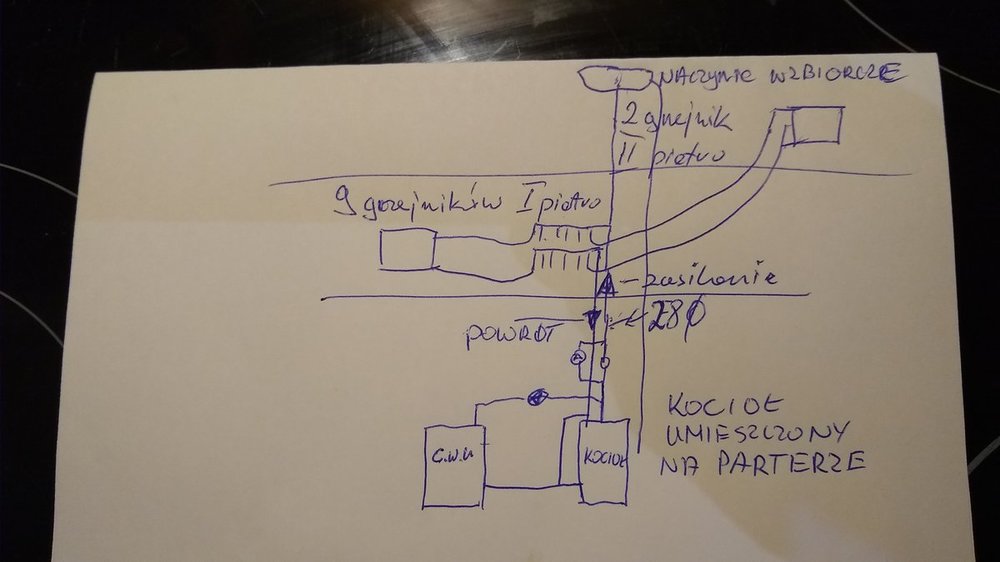 NACZYNIE WZBIORCZE
2 grzejnik
II piętro
9 grzejników I piętro
zasilanie
28ϕ
POWRÓT
KOCIOŁ
UMIESZCZONY
NA PARTERZE
C.W.U
KOCIOŁ